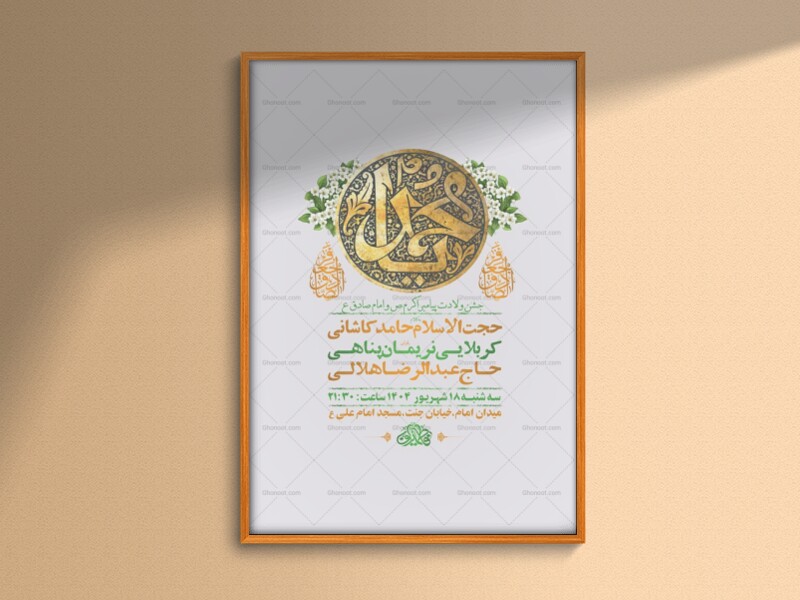 جشن ولادت پیامبر اکرم ص و امام صادق ع
حجت الاسلام حامد کاشانی
کربلایی نریمان پناهی
حاج عبدالرضا هلالی
سه شنبه ۱۸ شهریور ۱۴۰۴ ساعت: ۲۱:۳۰
میدان امام.خیابان جنت.مسجد امام علی ع
Ghonoot.com